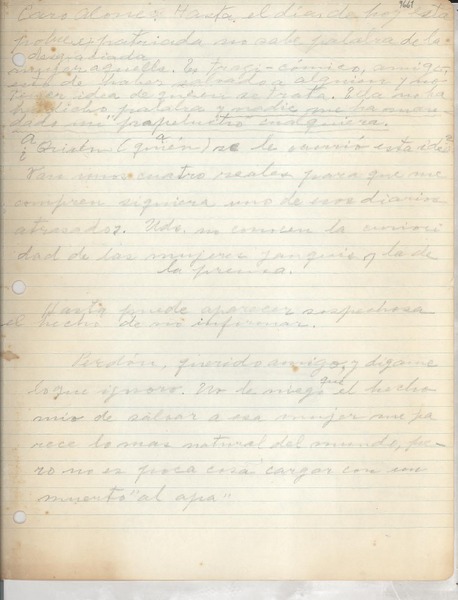 9661
Caro Alone: Hasta el día de hoy esta
pobre expatriada no sabe palabra de la
desgraciada
mujer aquella. Es tragi-cómico, amigo,
eso de haber salvado a alguien y no
tener idea de quien se trata. Ella no ha
dicho palabra y nadie me ha man-
dado un "papelucho" cualquiera.
a
¿Quién (quién) se le ocurrió esta idea
unos cuatro reales para que me
compren siquiera uno de esos diarios
atrasados. Uds. no conocen la curiosi-
dad de las mujeres yanquis y la de
la prensa.
Hasta puede aparecer sospechosa
el hecho de no informar.
Perdón, querido amigo, y dígame
lo que ignoro. No le niego que el hecho
mío de salvar a esa mujer me pa-
rece lo mas natural del mundo, pe-
ro no es poca cosa cargar con un
muerto "al apa"